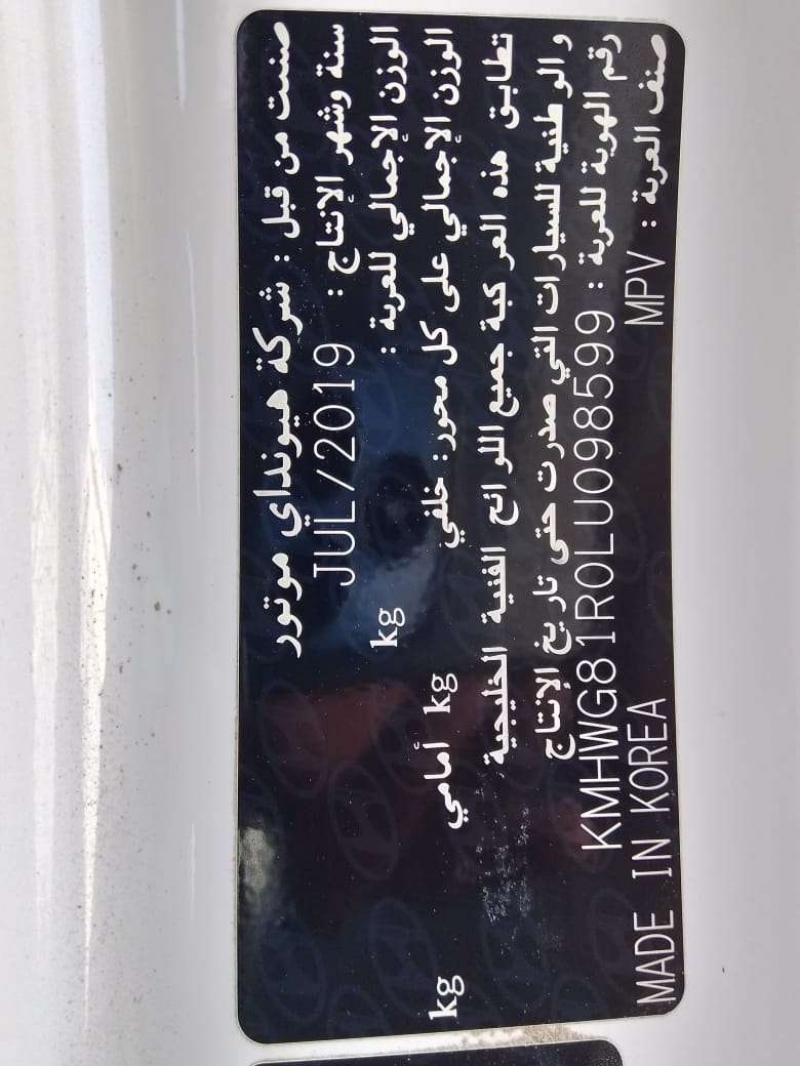 صنعت من قبل : شركة هيونداي موتور
سنة وشهر الإنتاج : JUL/2019
الوزن الإجمالي للعربة : kg
الوزن الإجمالي على كل محور: خلفي kg أمامي kg
تطابق هذه المركبة جميع اللوائح الفنية الخليجية
والوطنية للسيارات التي صدرت حتى تاريخ الإنتاج
رقم الهوية للعربة : KMHWG81R0LU098599
صنف العربة : MPV MADE IN KOREA